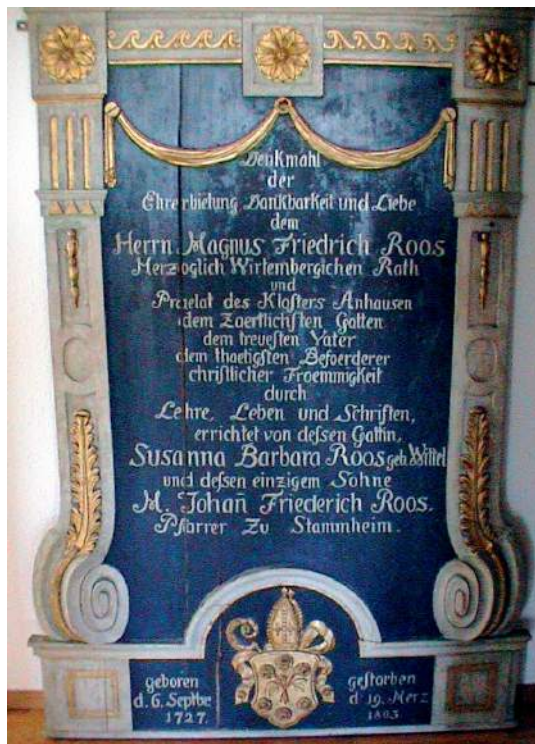 Denkmahl
der
Ehrerbietung Dankbarkeit und Liebe
dem
Herrn Magnus Friedrich Roos
Herzoglich Wirtembergichen Rath
und
Praelat des Klosters Anhausen
dem Zaertlichsten Gatten
dem treuesten Vater
dem thaetigsten Befoerderer
christlicher Froemmigkeit
durch
Lehre, Leben und Schriften,
errichtet von deſsen Gattin,
Susanna Barbara Roos geb. Wittel
und deſsen einzigem Sohne
M. Johan̄ Friederich Roos.
Pfarrer Zu Stammheim.
geboren
d. 6. Septbr
1727.
gestorben
d' 19. Merz
1803.